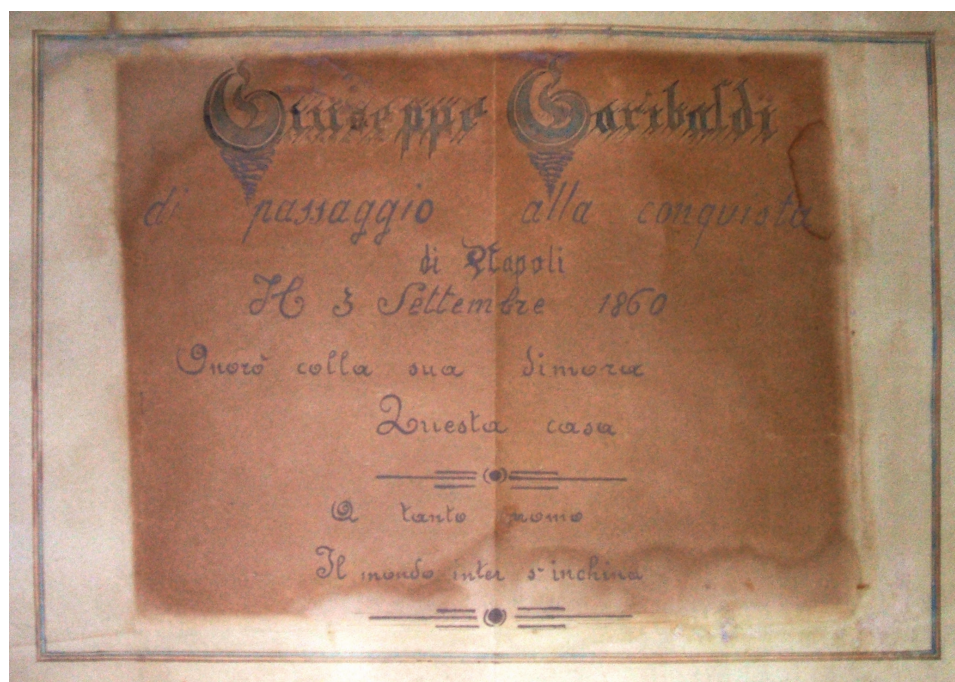 Giuseppe Garibaldi
di passaggio alla conquista
di Napoli
Il 3 Settembre 1860
Onorò colla sua dimora
Questa casa
A tanto nomo
Il mondo inter s'inchina